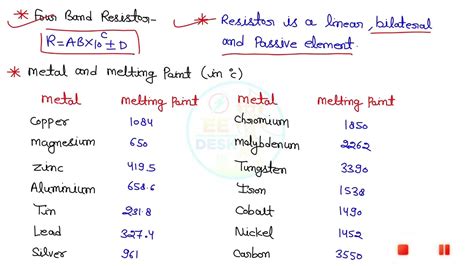 * Four Band Resistor-
R=ABX10^C ± D
* Resistor is a linear, bilateral
and Passive element.
* metal and melting Point (in °C)
metal melting Point metal melting Point
Copper 1084 Chromium 1850
magnesium 650 molybdenum 2262
Zinc 419.5 Tungsten 3390
Aluminium 658.6 Iron 1538
Tin 231.8 Cobalt 1490
Lead 327.4 Nickel 1452
Silver 961 Carbon 3550